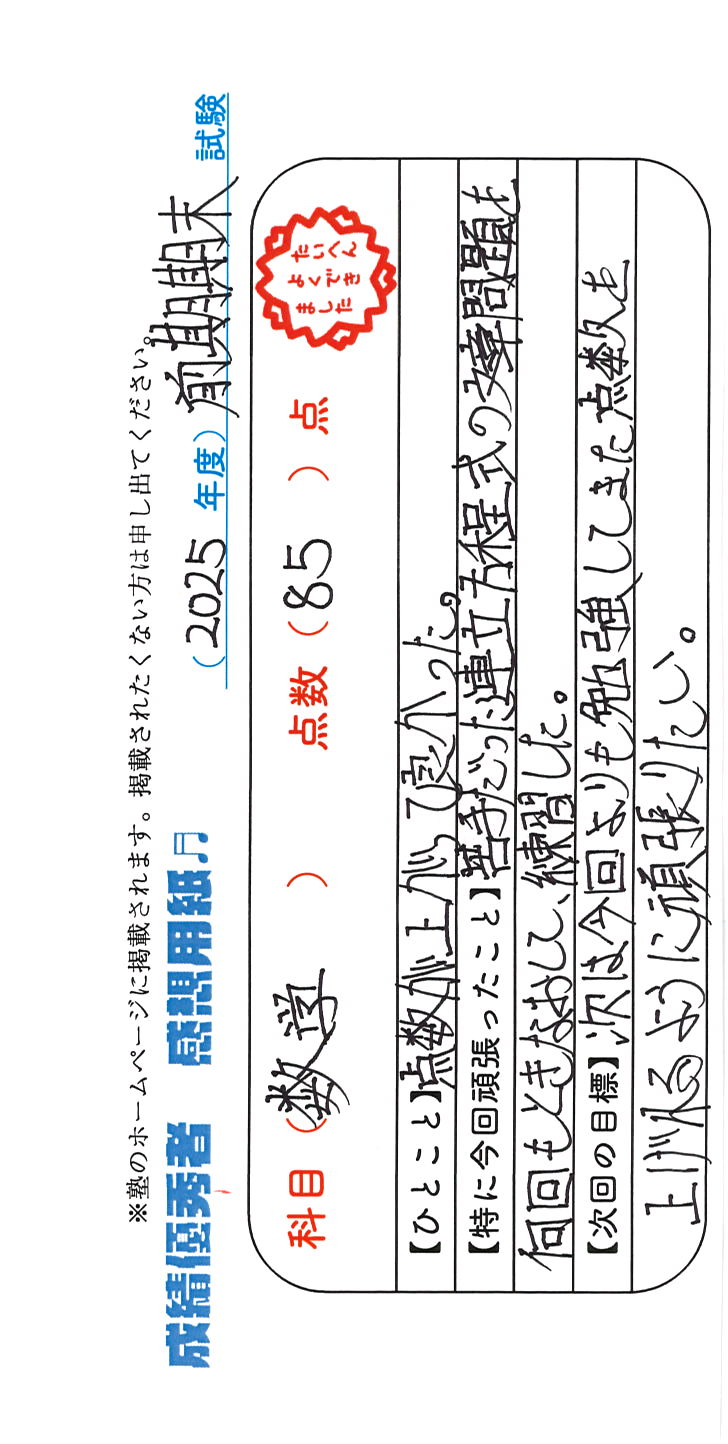 ※塾のホームページに掲載されます。掲載されたくない方は申し出てください。
成績優秀者　感想用紙♬
（2025 年度）前期期末 試験
科目（数学　）　点数（85　）点
たいへん
よくでき
ました
【ひとこと】点数が上がって良かった。
【特に今回頑張ったこと】苦手だった連立方程式の文章問題を
何回もときなおして、練習した。
【次回の目標】次は今回よりも勉強してきた点数を
上げれるように頑張りたい。